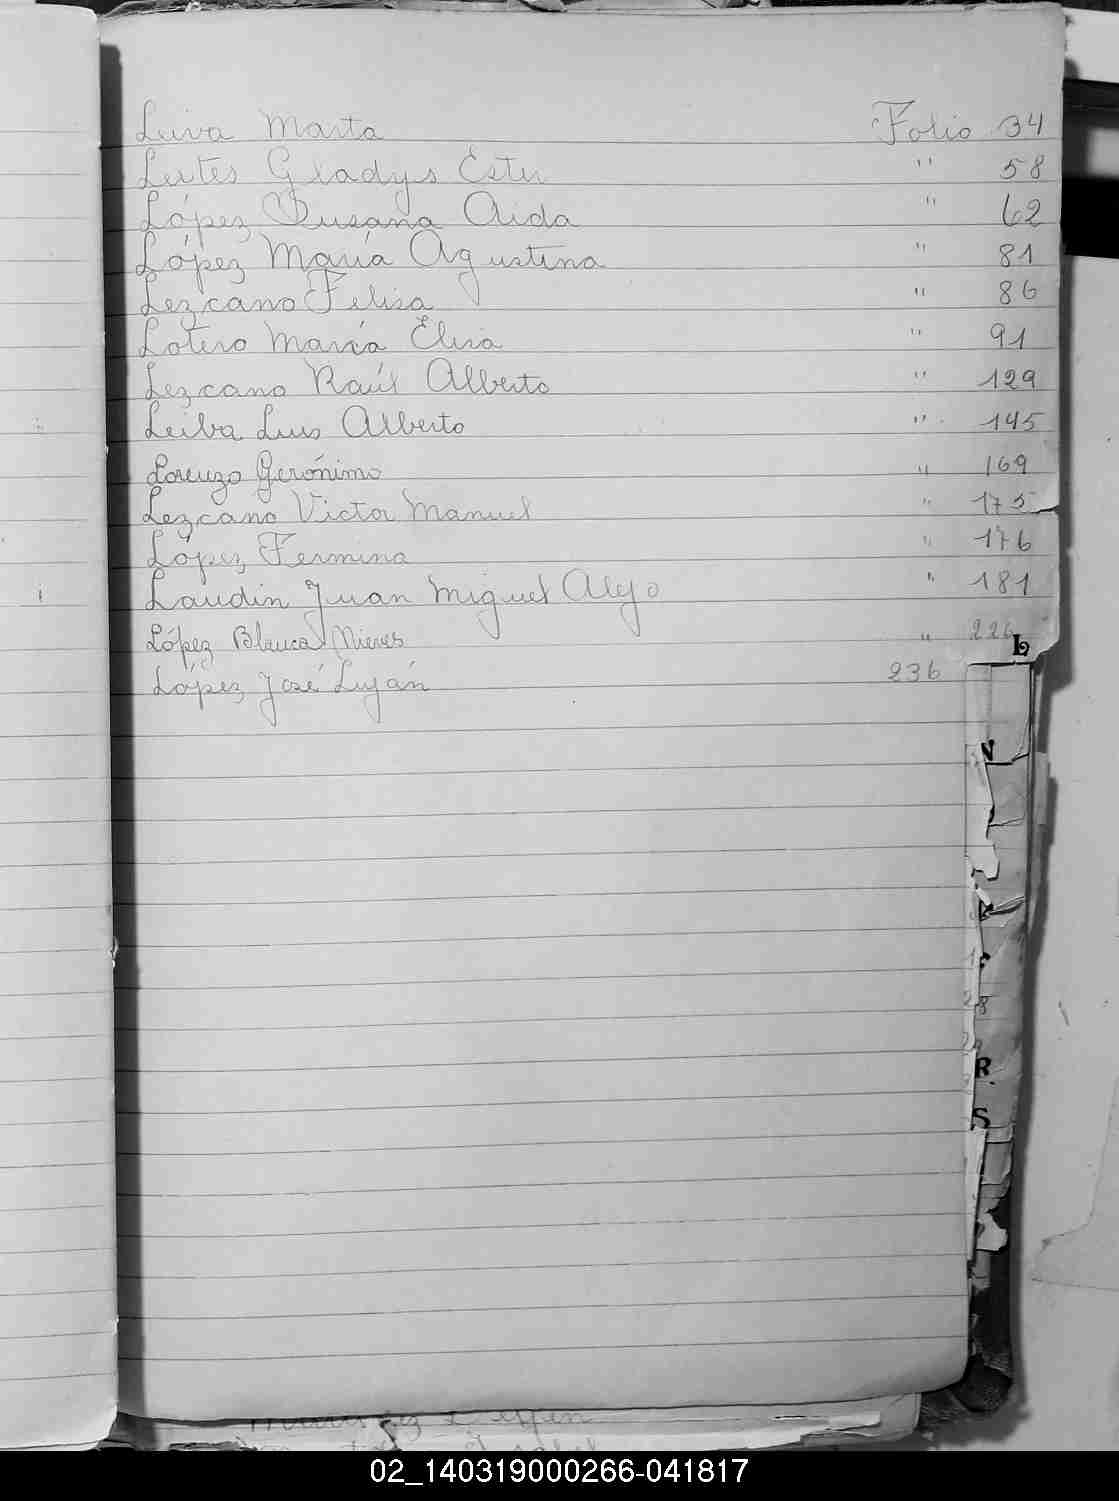 Leiva Marta Folio 34
Leites Gladys Ester " 58
López Susana Aida " 62
López María Agustina " 81
Lezcano Felisa " 86
Lotero María Elisa " 91
Lezcano Raúl Alberto " 129
Leiba Luis Alberto " 145
Lorenzo Gerónimo " 169
Lezcano Victor Manuel " 175
López Fermina " 176
Laudin Juan Miguel Alejo " 181
López Blanca Nieves " 226
L
López José Luján 236
N
R
S
02_140319000266-041817